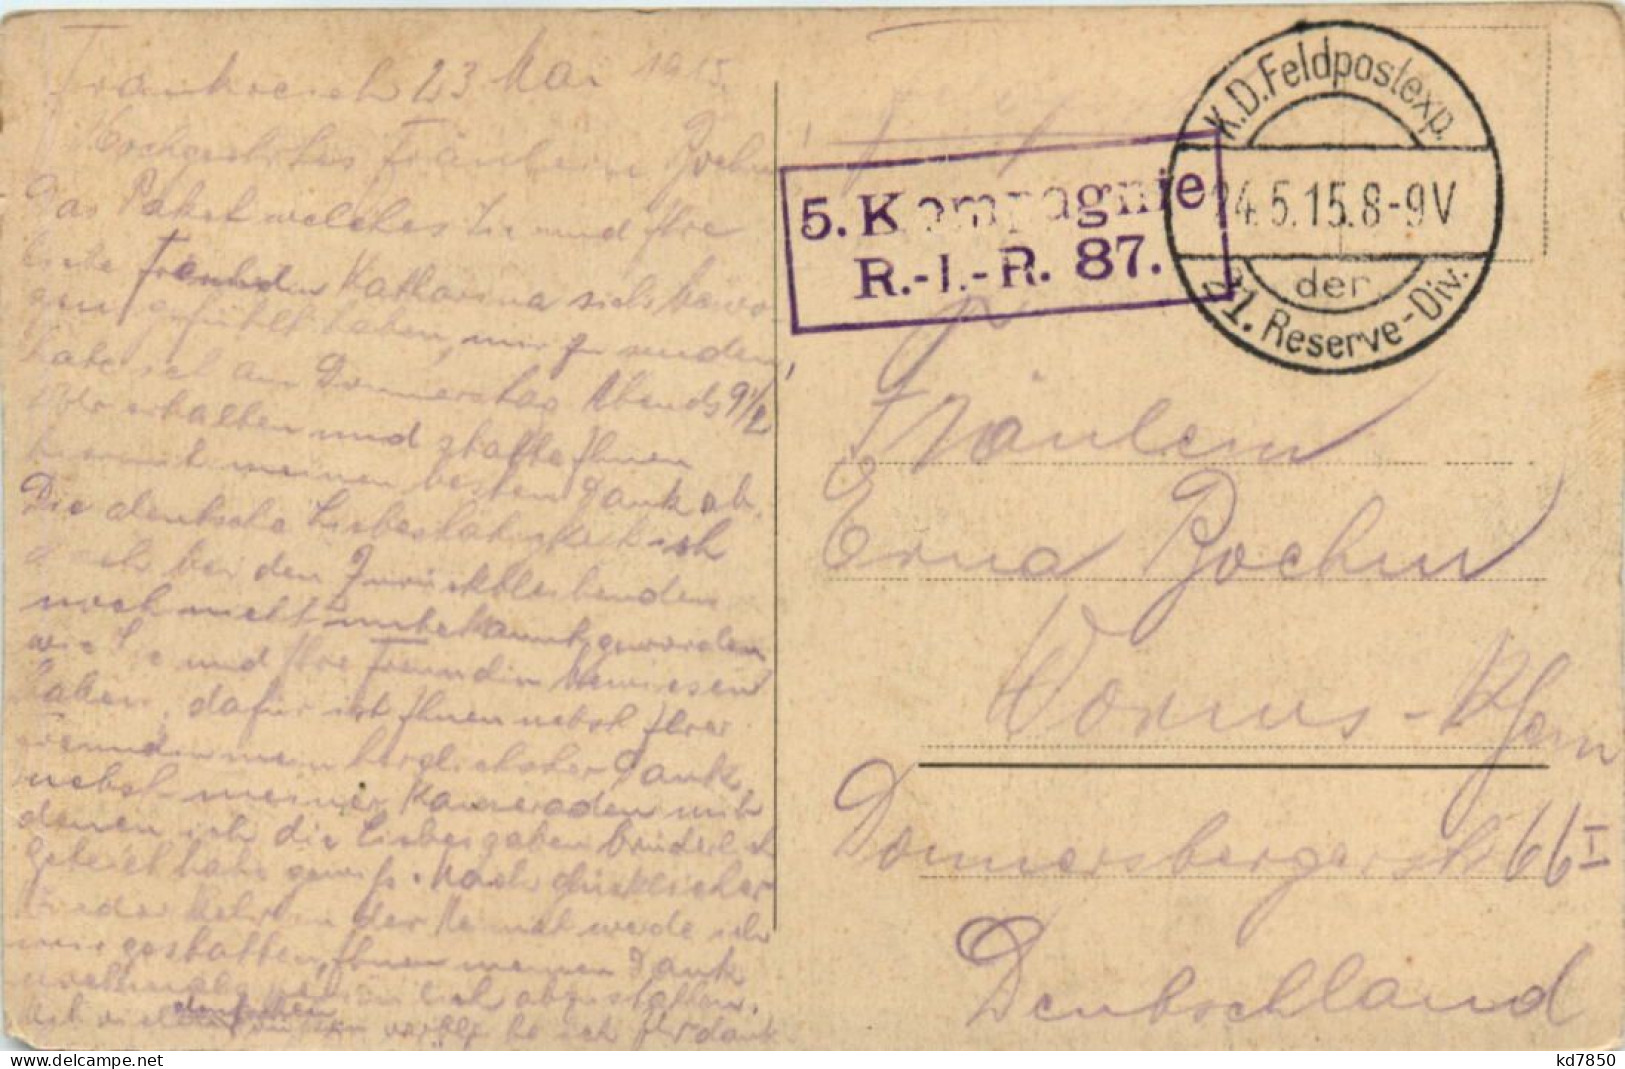 Frankreich 23 Mai 1915
Hochgeehrtes Fräulein Bochm!
Das Paket welches Sie und Ihre
liebe Freundin Katharina sich bewo-
gen gefühlt haben, mir zu senden,
habe ich am Donnerstag Abends 9 1/2
Uhr erhalten und statte Ihnen
hiermit meinen besten Dank ab.
Die deutsche Liebestätigkeit ist
doch bei den Zurückbleibenden
noch nicht unbekannt geworden
wie Sie und Ihre Freundin bewiesen
haben, dafür ist Ihnen nebst Ihrer
Freundin mein herzlichster Dank,
nebst meiner Kameraden mit
denen ich die Liebesgaben brüderlich
geteilt habe gewiss. Nach glücklicher
Wiederkehr in der Heimat werde ich
mir gestatten, Ihnen meinen Dank
nochmals abzustatten.
Mit vielen verbleibe ich Ihr dank
5. Kompagnie
R.-I.-R. 87.
K.D.Feldpostexp.
24.5.15.8-9V
der
21. Reserve-Div.
Fräulein
Erna Bochm
Worms - Rhein
Donnersbergerstr 66 I
Deutschland
kd7850